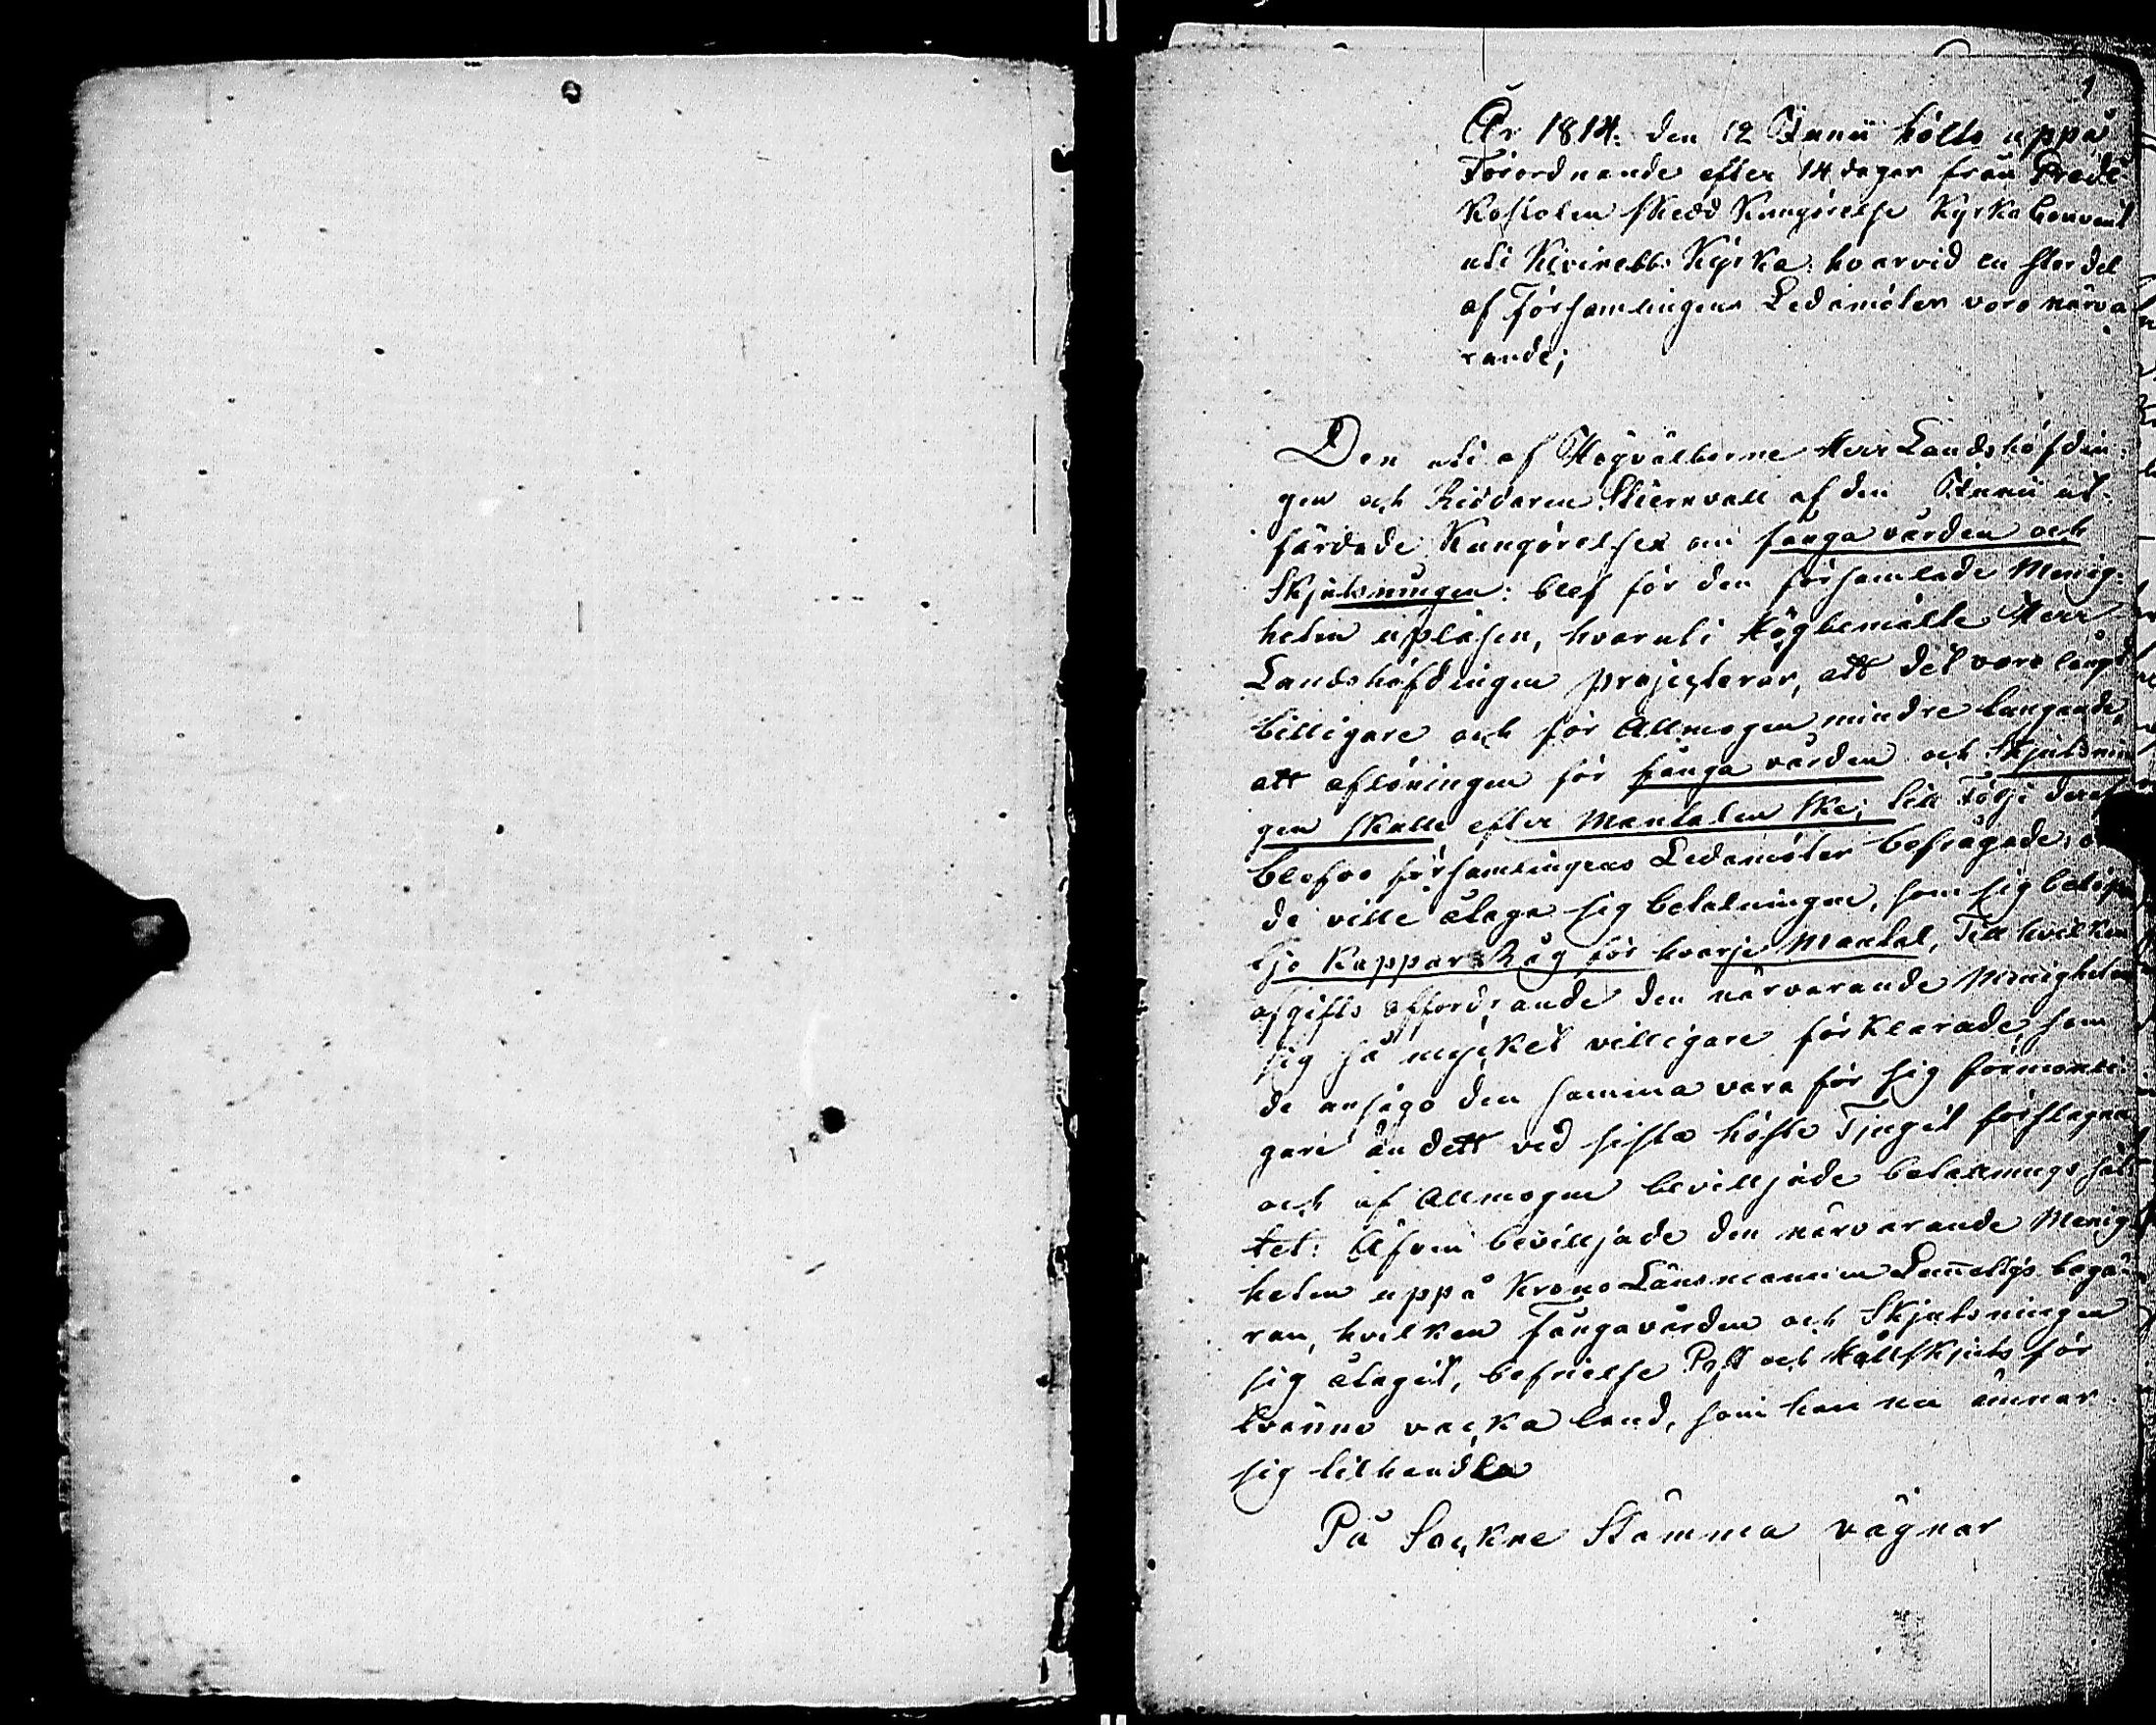 1
År 1814. den 12 Junii hölts uppå
Förordnande efter 14 dagar från Predi
kostolen skedd Kungörelse Kyrko Convent
uti Kivinebb: Kyrka: hvarvid en stor del
af Församlingens Ledamöter voro närva
rande;
Den uti af Högvälborne Herr Landshöfdin:
gen och Riddaren Stiernvall af den Junii ut-
färdade Kungörelsen om fånga vården och
Skjutsningen: blef för den församlade Menig:
heten upläsen, hvaruti Högbemälte Herr
Landshöfdingen projecterar, att det vore långt
billigare och för Allmogen mindre tungande,
att aflöningen för fånga vården och Skjutsnin
gen skulle efter Mantalen ske; till följe deraf
blefvo församlingens Ledamöter befrågade, om
de ville åtaga sig betalningen, som sig belöper
tjo Kappar Råg för hvarje Mantal, Till hvilken
afgifts den närvarande Menigheten
sig så mycket villigare förklarade, som
de ansågo den samma vara för sig förmonli:
gare än dett ved sista höste Tinget förslagna
och af Allmogen bevilljade betalnings sät
tet: Äfven bevilljade den närvarande Menig
heten uppå Krono Länsmannen begä
ran, hvilken Fångavården och Skjutsningen
sig åtagit, befrielse Post och Hållskjuts för
tvänne vacka land, som han nu ämnar
sig tilhandla
På Sockne Stämma vägnar